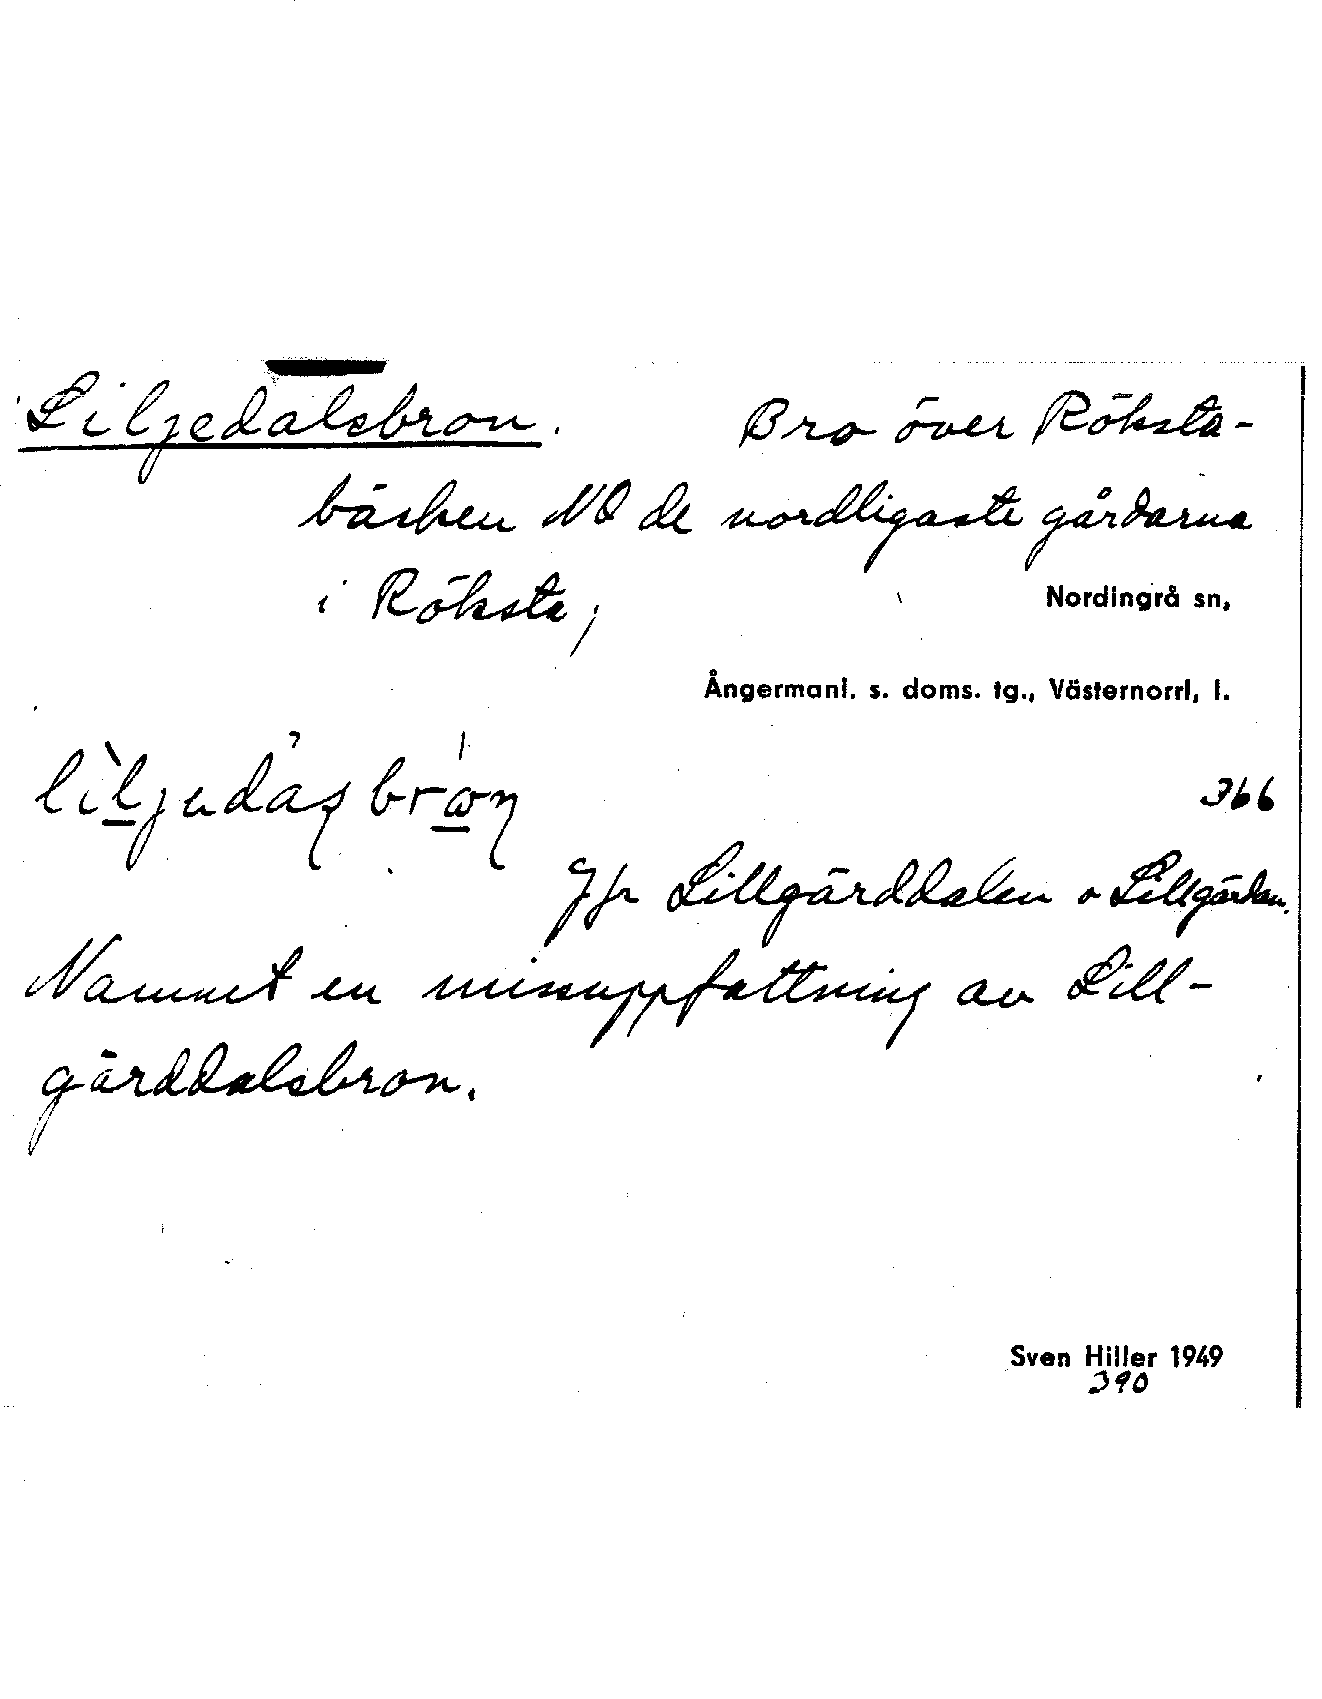 Liljedalsbron. Bro över Röksta-
bäcken NO de nordligaste gårdarna
i Röksta,
Nordingrå sn,
Ångermanl. s. doms. tg., Västernorrl. l.
366
Jfr Lillgärddalen o Lillgärdan.
Namnet en missuppfattning av Lill-
gärddalsbron.
Sven Hiller 1949
390